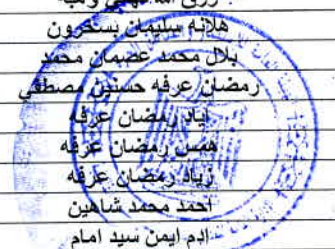 رزق الله فهمي وهبه
هلانه سليمان بسخرون
بلال محمد عضمان محمد
رمضان عرفه حسنين مصطفي
اياد رمضان عرفه
همس رمضان عرفه
زياد رمضان عرفه
احمد محمد شاهين
ادم ايمن سيد امام